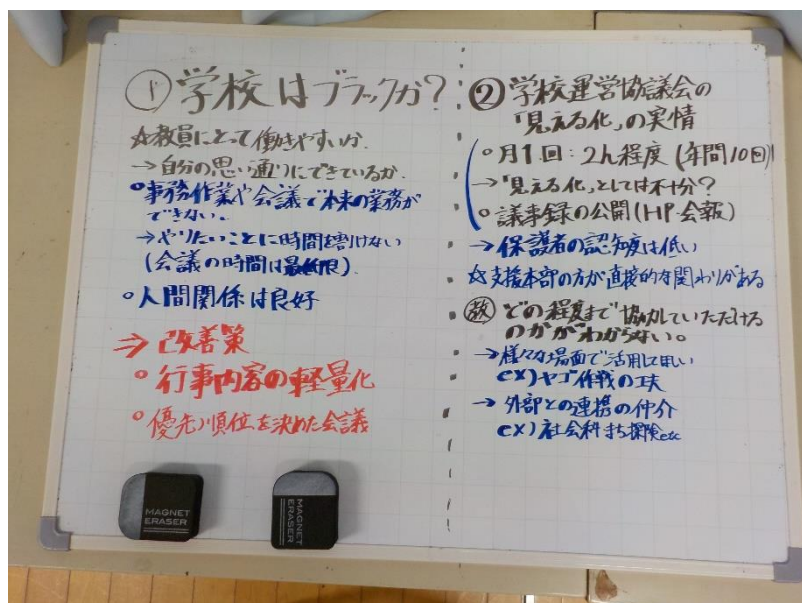 ①学校はブラックか?
☆教員にとって働きやすいか.
→自分の思い通りにできているか.
○事務作業や会議で本来の業務が
できない。
→やりたいことに時間を割けない
(会議の時間は最低限).
○人間関係は良好
⇒改善策
○行事内容の軽量化
○優先順位を決めた会議
②学校運営協議会の
「見える化」の実情
○月1回:2h程度(年間10回)
→「見える化」としては不十分?
○議事録の公開(HP・会報)
→保護者の認知度は低い
☆支援本部の方が直接的な関わりがある
教 どの程度まで協力していただける
のかがわからない。
→様々な場面で活用してほしい
ex)ヤゴ作戦の工夫
→外部との連携の仲介
ex)社会科まち探険etc
MAGNET
ERASER
MAGNET
ERASER